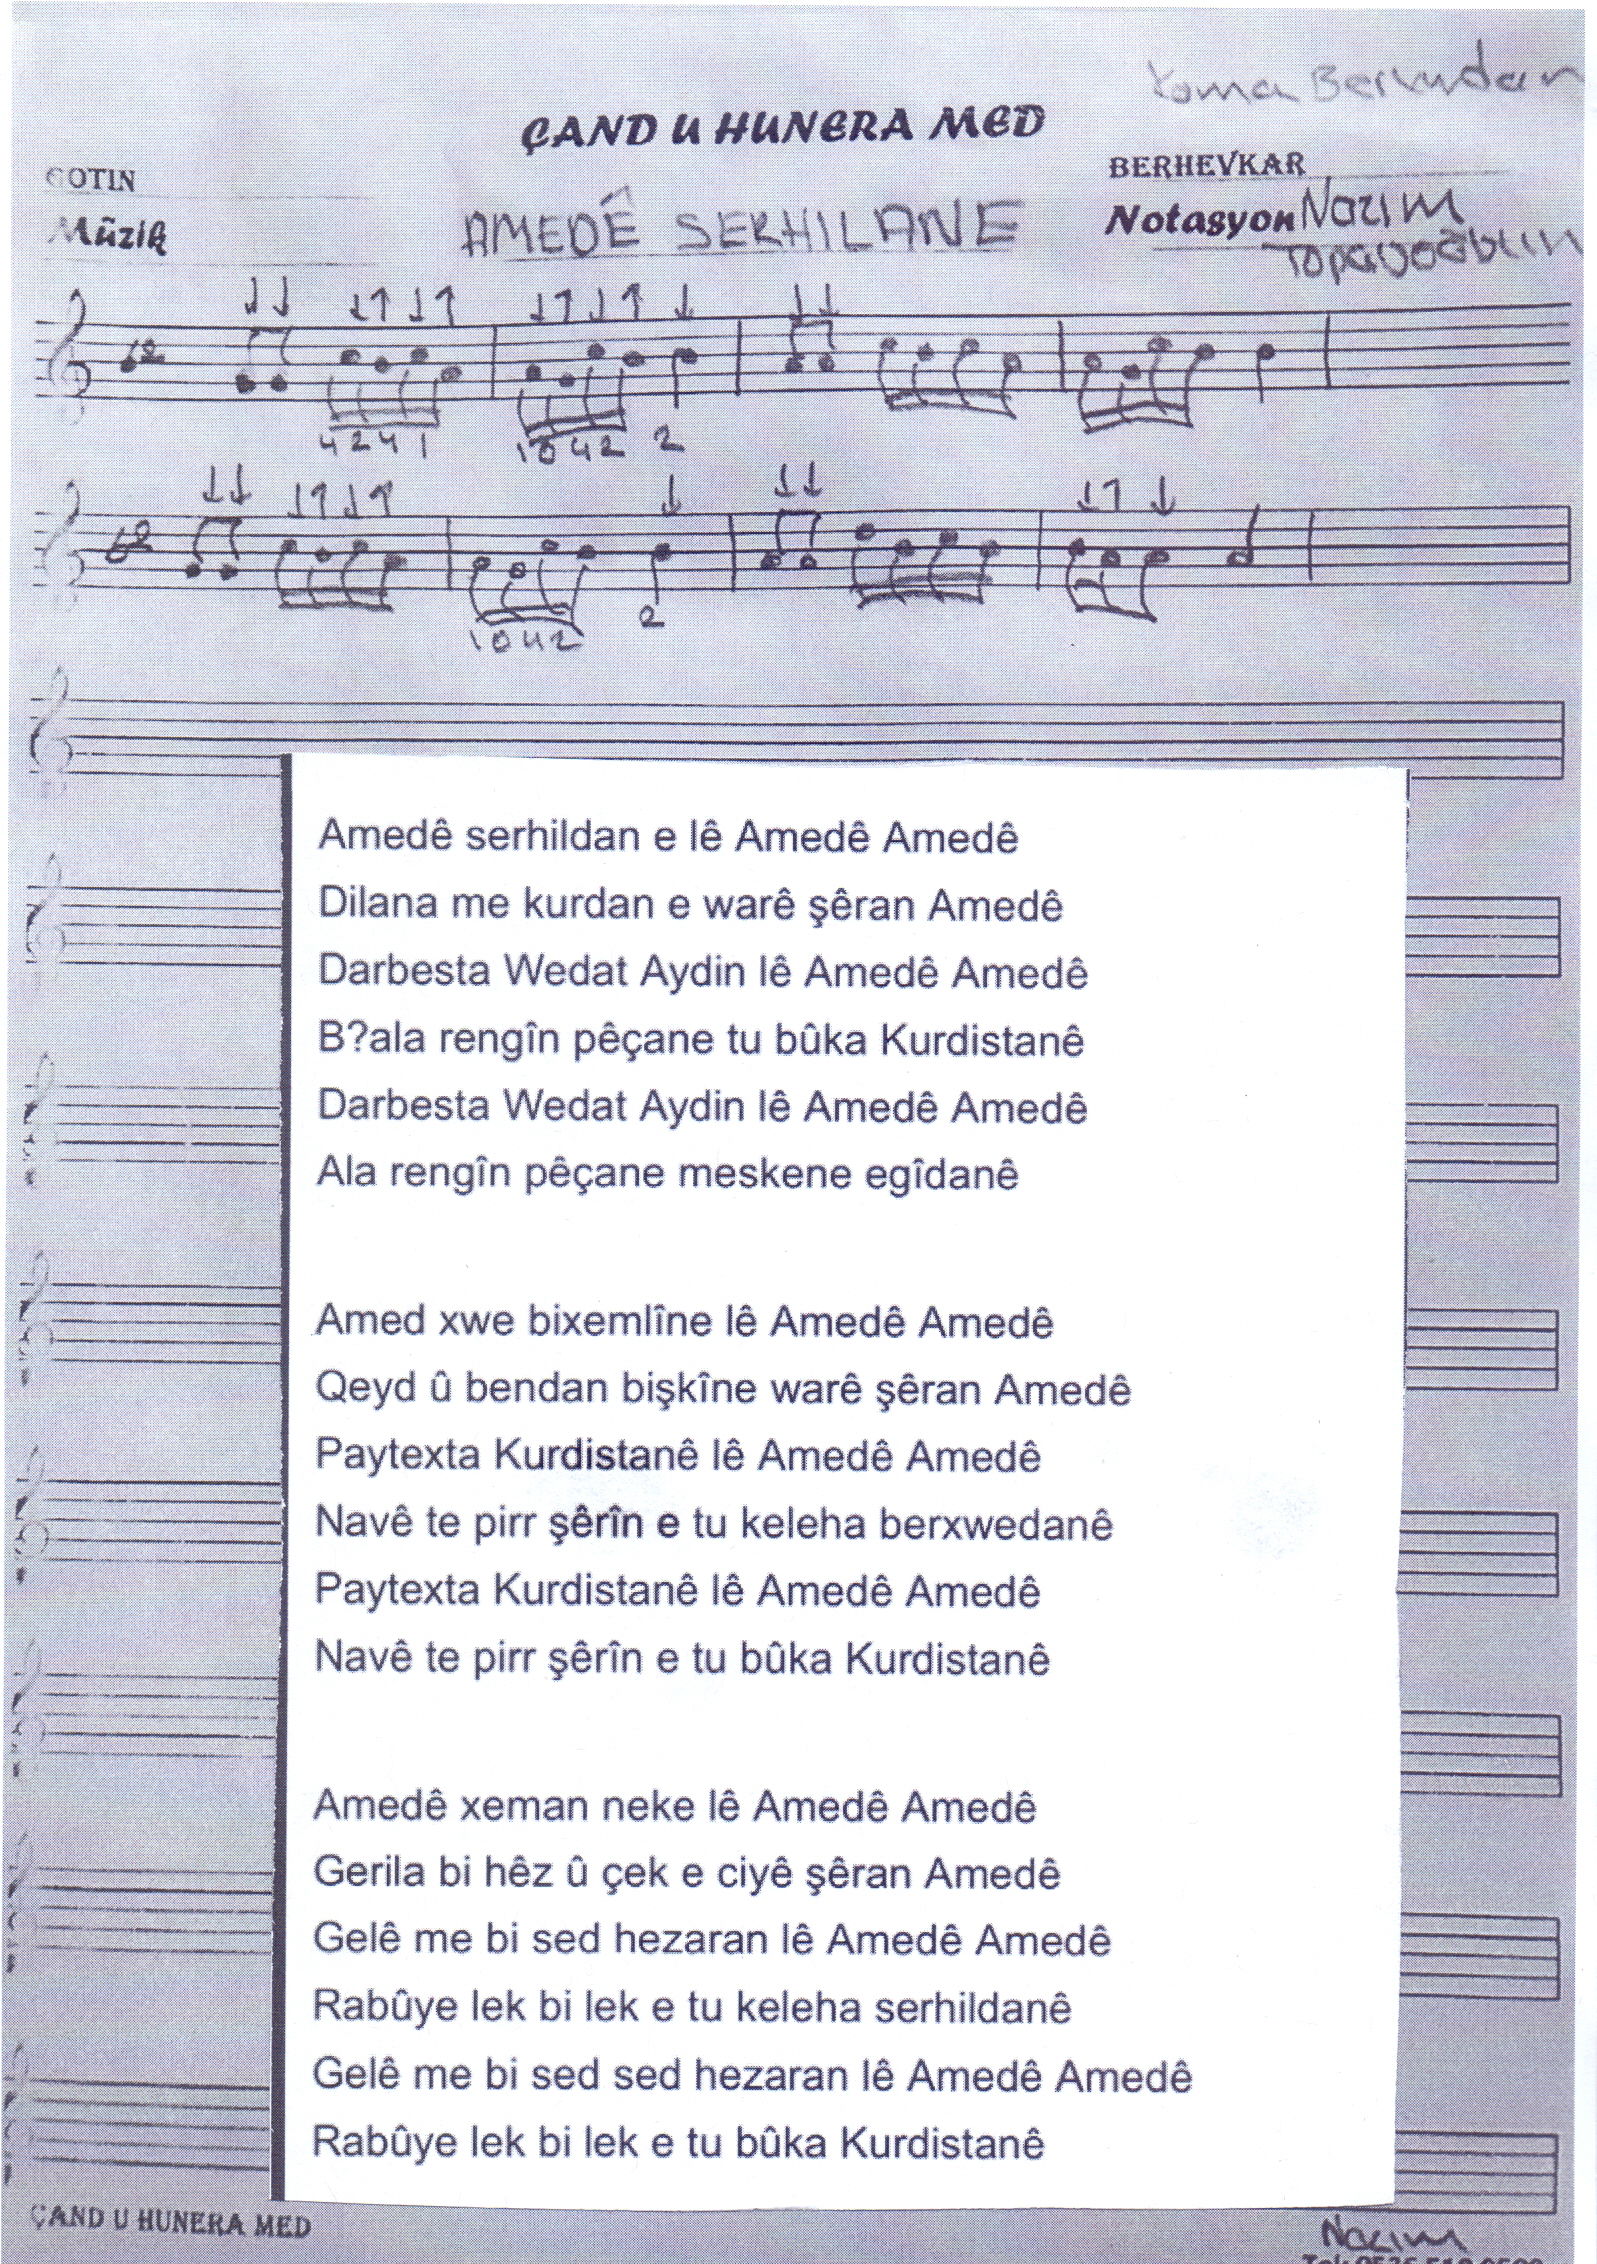 ÇAND U HUNERA MED
GOTIN
BERHEVKAR
Mûzik
AMEDÊ SERHILANE
Notasyon Nazım
4 2 4 1
1 0 4 2 2
1 0 4 2 2
Amedê serhildan e lê Amedê Amedê
Dilana me kurdan e warê şêran Amedê
Darbesta Wedat Aydin lê Amedê Amedê
B?ala rengîn pêçane tu bûka Kurdistanê
Darbesta Wedat Aydin lê Amedê Amedê
Ala rengîn pêçane meskene egîdanê
Amed xwe bixemlîne lê Amedê Amedê
Qeyd û bendan bişkîne warê şêran Amedê
Paytexta Kurdistanê lê Amedê Amedê
Navê te pirr şêrîn e tu keleha berxwedanê
Paytexta Kurdistanê lê Amedê Amedê
Navê te pirr şêrîn e tu bûka Kurdistanê
Amedê xeman neke lê Amedê Amedê
Gerila bi hêz û çek e ciyê şêran Amedê
Gelê me bi sed hezaran lê Amedê Amedê
Rabûye lek bi lek e tu keleha serhildanê
Gelê me bi sed sed hezaran lê Amedê Amedê
Rabûye lek bi lek e tu bûka Kurdistanê
ÇAND U HUNERA MED
Nazım